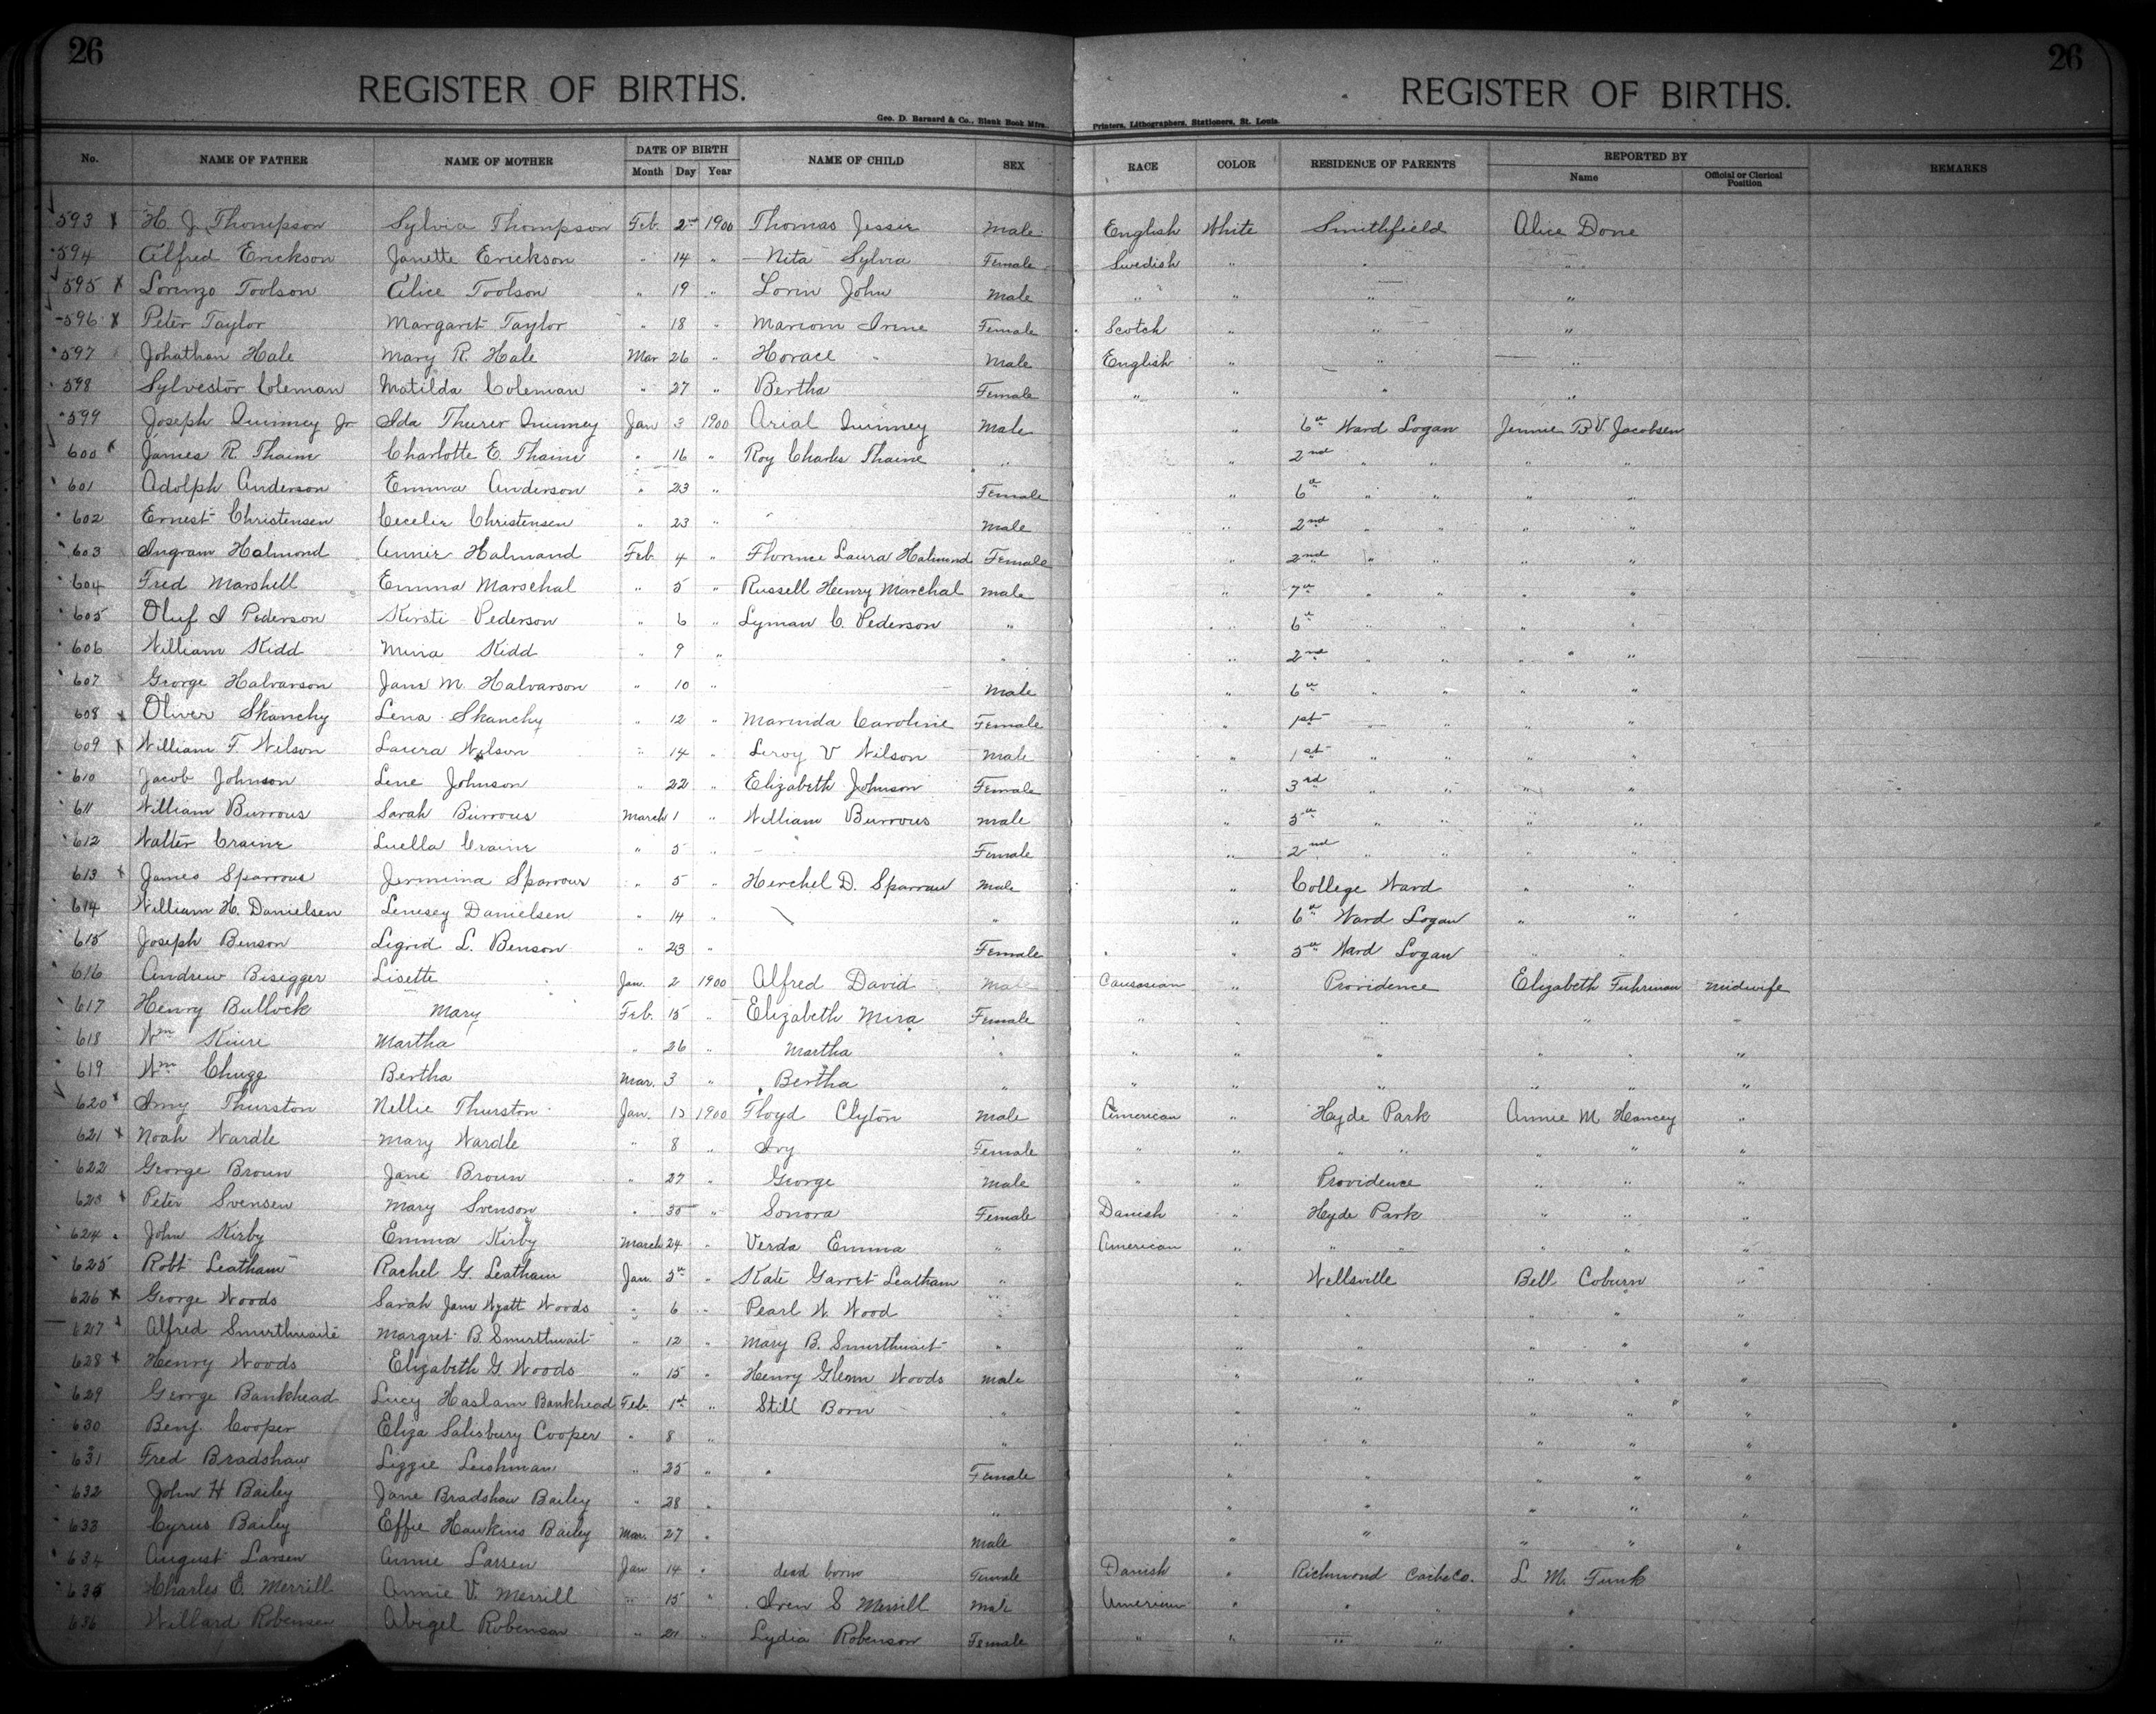 26
26
REGISTER OF BIRTHS.
REGISTER OF BIRTHS.
Geo. D. Barnard & Co., Blank Book Mfrs.,
Printers, Lithographers, Stationers, St. Louis.
No. NAME OF FATHER NAME OF MOTHER DATE OF BIRTH NAME OF CHILD SEX RACE COLOR RESIDENCE OF PARENTS REPORTED BY REMARKS
Month Day Year Name Official or Clerical Position
593 x H. J. Thompson Sylvia Thompson Feb. 2nd 1900 Thomas Jessie Male English White Smithfield Alice Done
594 Alfred Erickson Janette Erickson " 14 " Nita Sylvia Female Swedish " " "
595 x Lorenzo Toolson Alice Toolson " 19 " Lorin John Male " " " "
596 x Peter Taylor Margaret Taylor " 18 " Marion Irene Female Scotch " " "
597 Johathan Hale Mary R. Hale Mar 26 " Horace Male English " " "
598 Sylvestor Coleman Matilda Coleman " 27 " Bertha Female " " " "
599 Joseph Quinney Jr Ida Thurer Quinney Jan 3 1900 Arial Quinney Male " 6th Ward Logan Jennie B V Jacobsen
600 x James R. Thaine Charlotte E. Thaine " 16 " Roy Charles Thaine " " 2nd " " " "
601 Adolph Anderson Emma Anderson " 23 " Female " 6th " " " "
602 Ernest Christensen Cecelie Christensen " 23 " Male " 2nd " " " "
603 Ingram Halmond Annie Halmand Feb. 4 " Florence Laura Halmond Female 2nd " " " "
604 Fred Marshell Emma Marschal " 5 " Russell Henry Marchal Male " 7th " " " "
605 Oluf I Pederson Kirsti Pederson " 6 " Lyman C. Pederson " " 6th " " " "
606 William Kidd Mina Kidd " 9 " " " 2nd " " " "
607 George Halvarson Jane M. Halvarson " 10 " Male " 6th " " " "
608 x Oliver Skanchy Lena Skanchy " 12 " Marinda Caroline Female " 1st " " " "
609 x William F. Wilson Laura Wilson " 14 " Leroy V Wilson Male " 1st " " " "
610 Jacob Johnson Line Johnson " 22 " Elizabeth Johnson Female " 3rd " " " "
611 William Burrous Sarah Burrous March 1 " William Burrous Male " 5th " " " "
612 Walter Craine Luella Craine " 5 " Female " 2nd " " " "
613 x James Sparrow Jermima Sparrow " 5 " Herchel D. Sparrow Male " College Ward " "
614 William H. Danielsen Danielsen " 14 " " " 6th Ward Logan " "
615 Joseph Benson L. Benson " 23 " Female " 5th Ward Logan " "
616 Andrew Bisegger Lisette Jan. 2 1900 Alfred David Male Causasian " Providence Elizabeth Fuhriman Midwife
617 Henry Bullock Mary Feb. 15 " Elizabeth Mira Female " " " " "
618 Wm Martha " 26 " Martha " " " " " " "
619 Wm Chugg Bertha Mar. 3 " Bertha " " " " " " "
620 x Thurston Nellie Thurston Jan. 1900 Floyd Clyton Male American " Hyde Park Annie M Hancey "
621 x Noah Wardle Mary Wardle " 8 " Ivy Female " " " " " " "
622 George Broun Jane Broun " 27 " George Male " " Providence " " "
623 x Peter Svensen Mary Svenson " 30 " Sonora Female Danish " Hyde Park " " "
624 John Kirby Emma Kirby March 24 " Verda Emma " American " " " " " "
625 Robt Leatham Rachel G. Leatham Jan. 5th " Kate Garret Leatham " " Wellsville Bell Coburn "
626 x George Woods Sarah Jane Wyatt Woods " 6 " Pearl W. Wood " " " " "
627 x Alfred Smurthwaite Margret B. Smurthwait " 12 " Mary B. Smurthwait " " " " "
628 x Henry Woods Elizabeth G. Woods " 15 " Henry Glenn Woods Male " " " " "
629 George Bankhead Lucy Haslam Bankhead Feb. 1st " Still Born " " " " " "
630 Benj. Cooper Eliza Salisbury Cooper " 8 " " " " " " "
631 Fred Bradshaw Lizzie Leishman " 25 " Female " " " " "
632 John H Bailey Jane Bradshaw Bailey " 28 " " " " " " "
633 Cyrus Bailey Effie Hawkins Bailey Mar. 27 " Male " " " " "
634 August Larsen Annie Larsen Jan 14 " dead born Female Danish " Richmond Cache Co. L M. Funk
635 Charles E. Merrill Annie V. Merrill " 15 " Iven S Merrill Male American " " " "
636 Willard Robensen Abigel Robenson " 21 " Lydia Robenson Female " " " " "